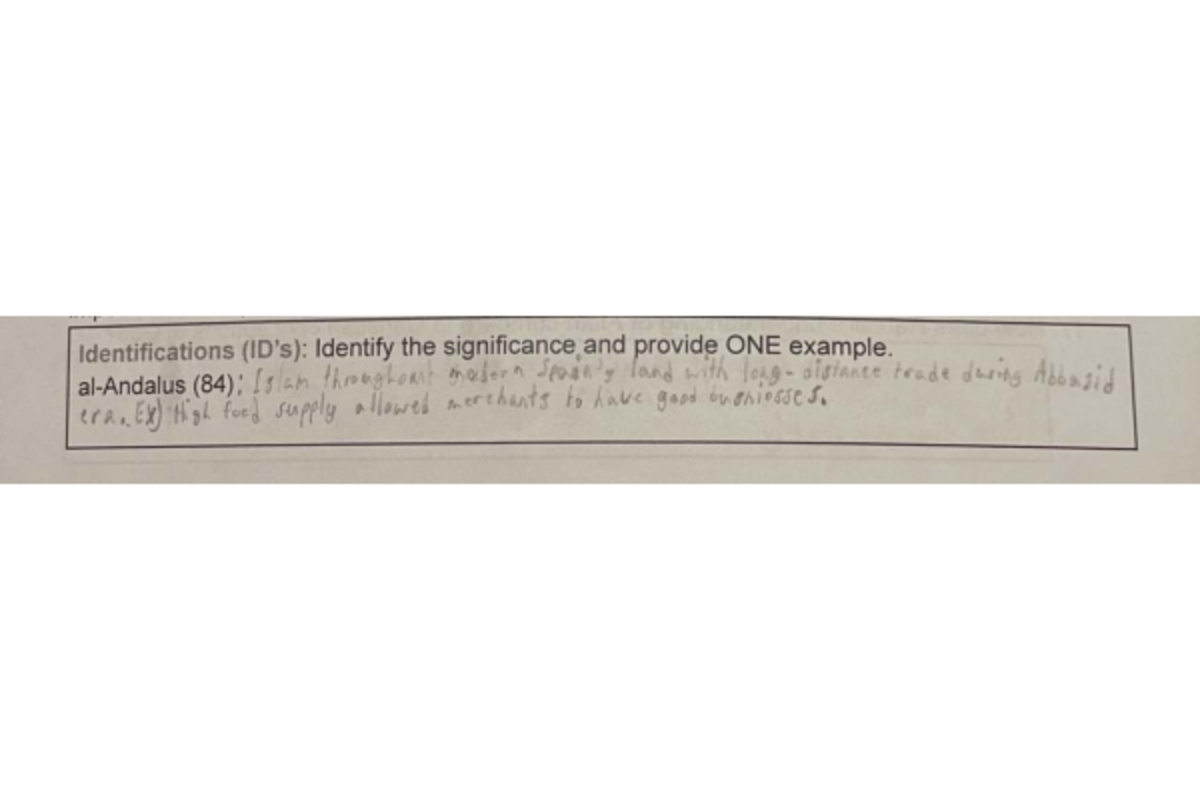 Identifications (ID's): Identify the significance and provide ONE example.
al-Andalus (84): Islam throughout modern Spain's land with long-distance trade during Abbasid
era. Ex) High food supply allowed merchants to have good